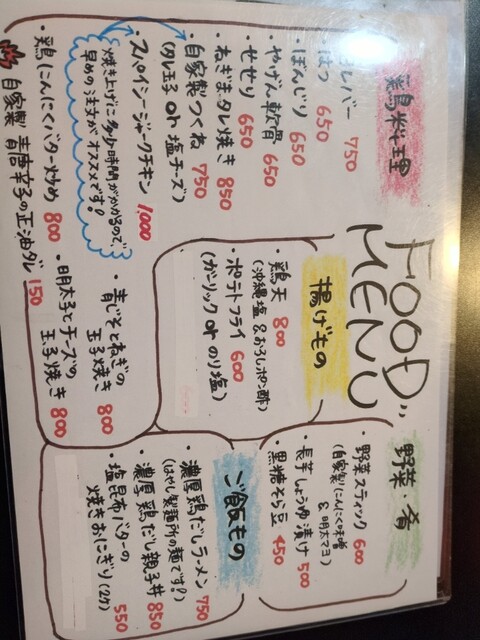 FOOD
MENU
鶏料理
レバー 750
はつ 650
・ぼんじり 650
・やげん軟骨 650
・せせり 650
・ねぎまタレ焼き 850
・自家製つくね 750
(タレ玉子 or 塩チーズ)
・スパイシージャークチキン 1,000
焼き上げに多少時間がかかるので、
早めの注文がオススメです!
・鶏にんにくバター炒め 800
自家製 青唐辛子の正油ダレ 150
・青じそとねぎの
玉子焼き 800
・明太子とチーズの
玉子焼き 800
揚げもの
・鶏天 800
(沖縄塩&おろしポン酢)
・ポテトフライ 600
(ガーリック or のり塩)
野菜・肴
・野菜スティック 600
(自家製にんにく味噌
&明太マヨ)
・長芋しょうゆ漬け 500
・黒糖そら豆 450
ご飯もの
・濃厚鶏だしラーメン 750
(はやし製麺所の麺です!)
・濃厚鶏だし親子丼 850
・塩昆布バターの
焼きおにぎり(2ケ) 550